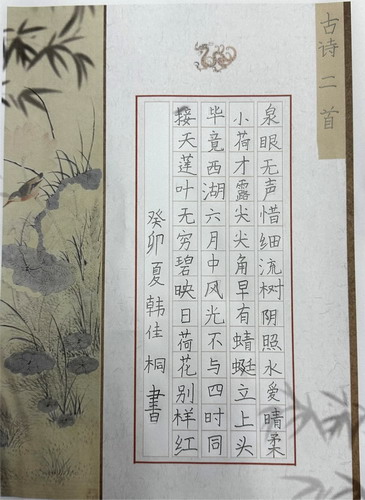 古诗二首
泉眼无声惜细流树阴照水爱晴柔
小荷才露尖尖角早有蜻蜓立上头
毕竟西湖六月中风光不与四时同
接天莲叶无穷碧映日荷花别样红
癸卯夏韩佳桐书